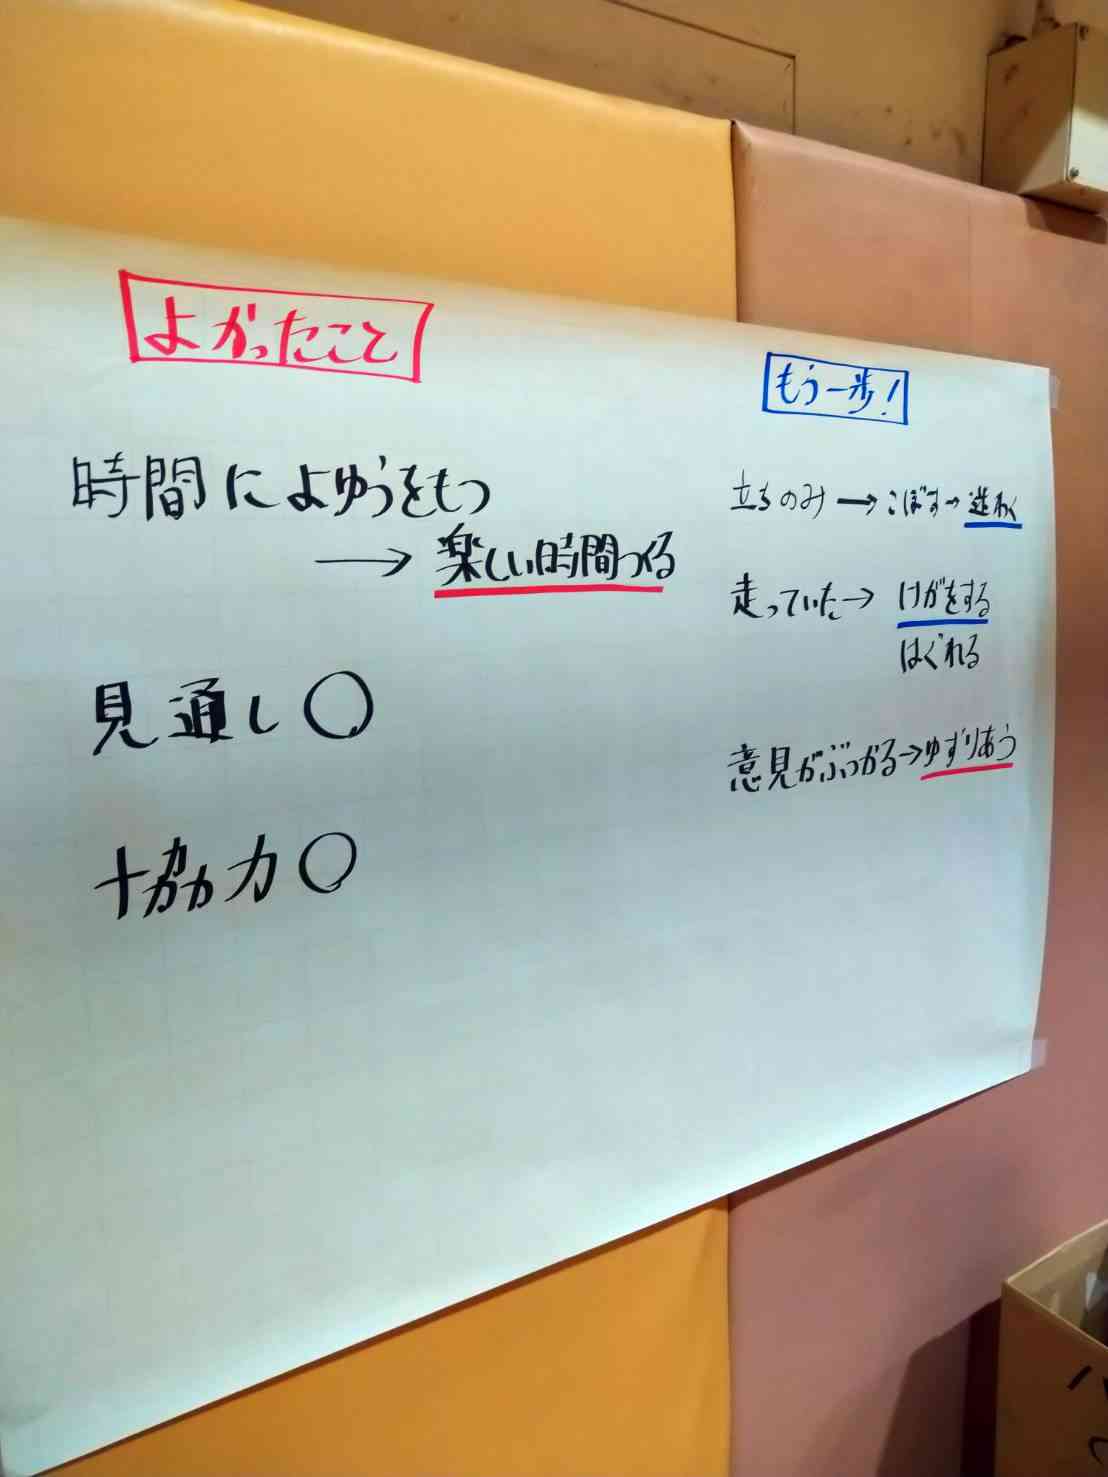 よかったこと
時間によゆうをもつ
→ 楽しい時間つくる
見通し○
協力○
もう一歩!
立ちのみ→こぼす→迷わく
走っていた→けがをする
はぐれる
意見がぶつかる→ゆずりあう